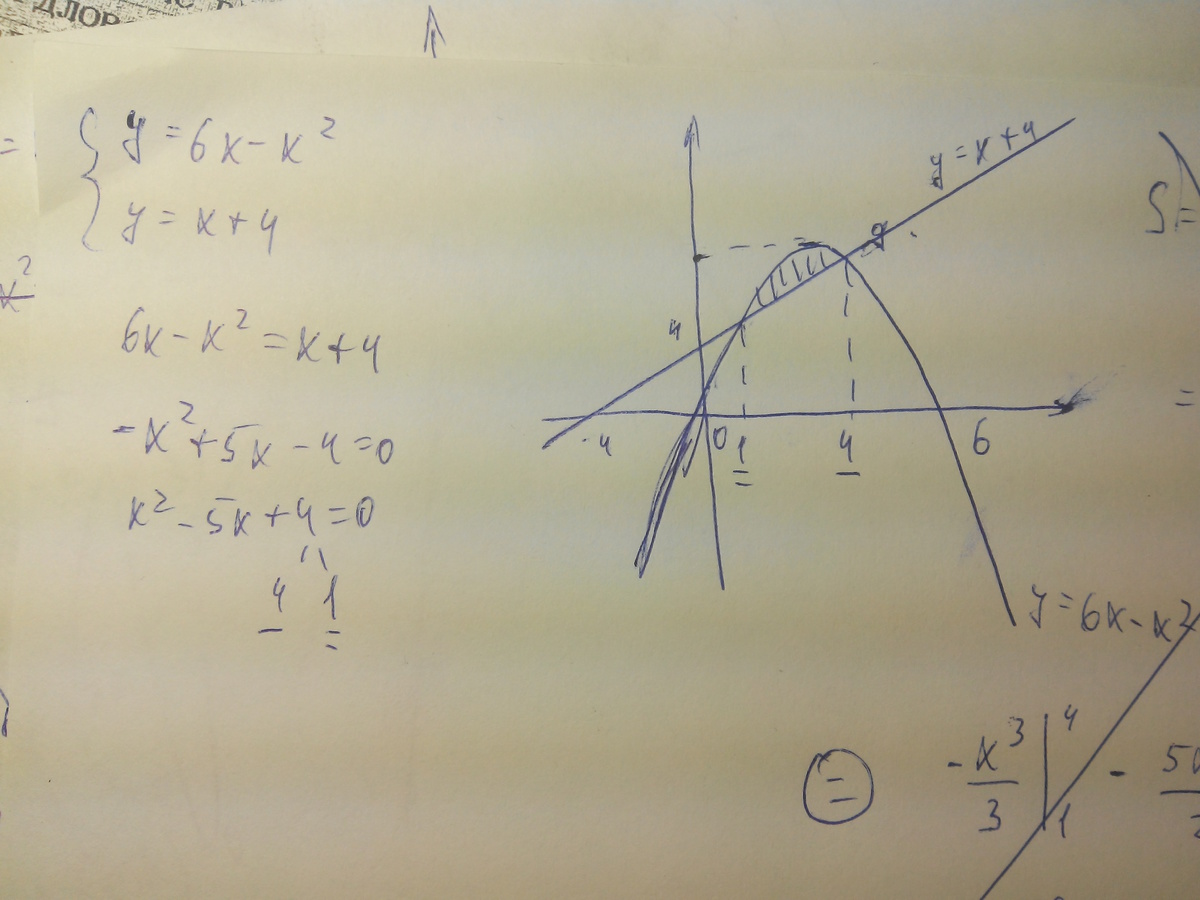 ДЛОР
y = 6x - x²
y = x + 4
6x - x² = x + 4
-x² + 5x - 4 = 0
x² - 5x + 4 = 0
4 1
y = x + 4
4
-4 0 1 4 6
y = 6x - x²
S =
=
x²
= -x³/3 |₁⁴ - 5